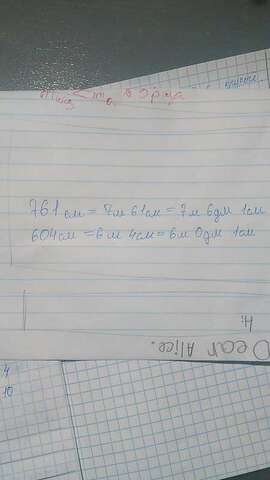 в 3 раза
761 см = 7м 61см = 7м 6дм 1см
604см = 6м 4см = 6м 0дм 1см
Hi
Dear Alice.
4
10